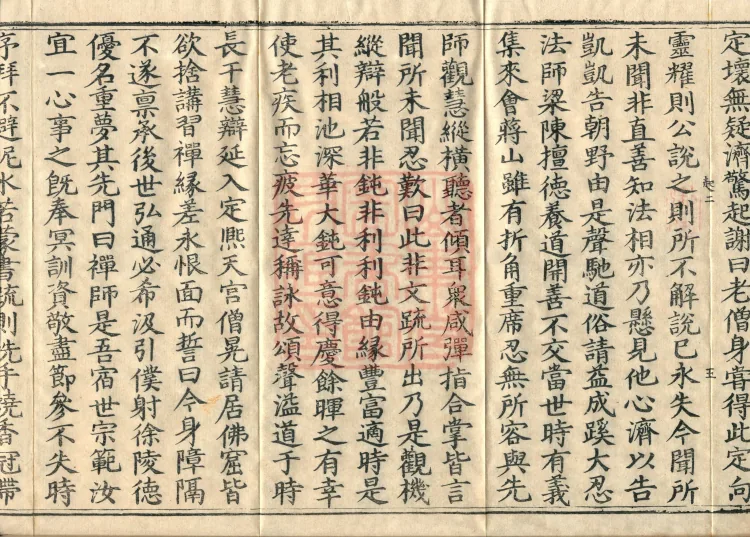 定壞無疑濟驚起謝曰老僧身甞得此定向
靈耀則公說之則所不解說已永失今聞所
未聞非直善知法相亦乃懸見他心濟以告
凱凱告朝野由是聲馳道俗請益成蹊大忍
法師梁陳擅德養道開善不交當世時有義
集來會蔣山雖有折角重席忍無所容與先
卷二
五
師觀慧縱橫聽者傾耳衆咸彈指合掌皆言
聞所未聞忍歎曰此非文疏所出乃是觀機
縱辯般若非鈍非利利鈍由緣豐富適時是
其利相池深華大鈍可意得慶餘暉之有幸
使老疾而忘疲先達稱詠故頌聲溢道于時
長干慧辯延入定熈天宮僧晃請居佛窟皆
欲捨講習禪緣差永恨面而誓曰今身障隔
不遂禀承後世弘通必希汲引僕射徐陵德
優名重夢其先門曰禪師是吾宿世宗範汝
宜一心事之旣奉冥訓資敬盡節參不失時
序拜不避泥水若蒙書疏則先手燒香冠帶